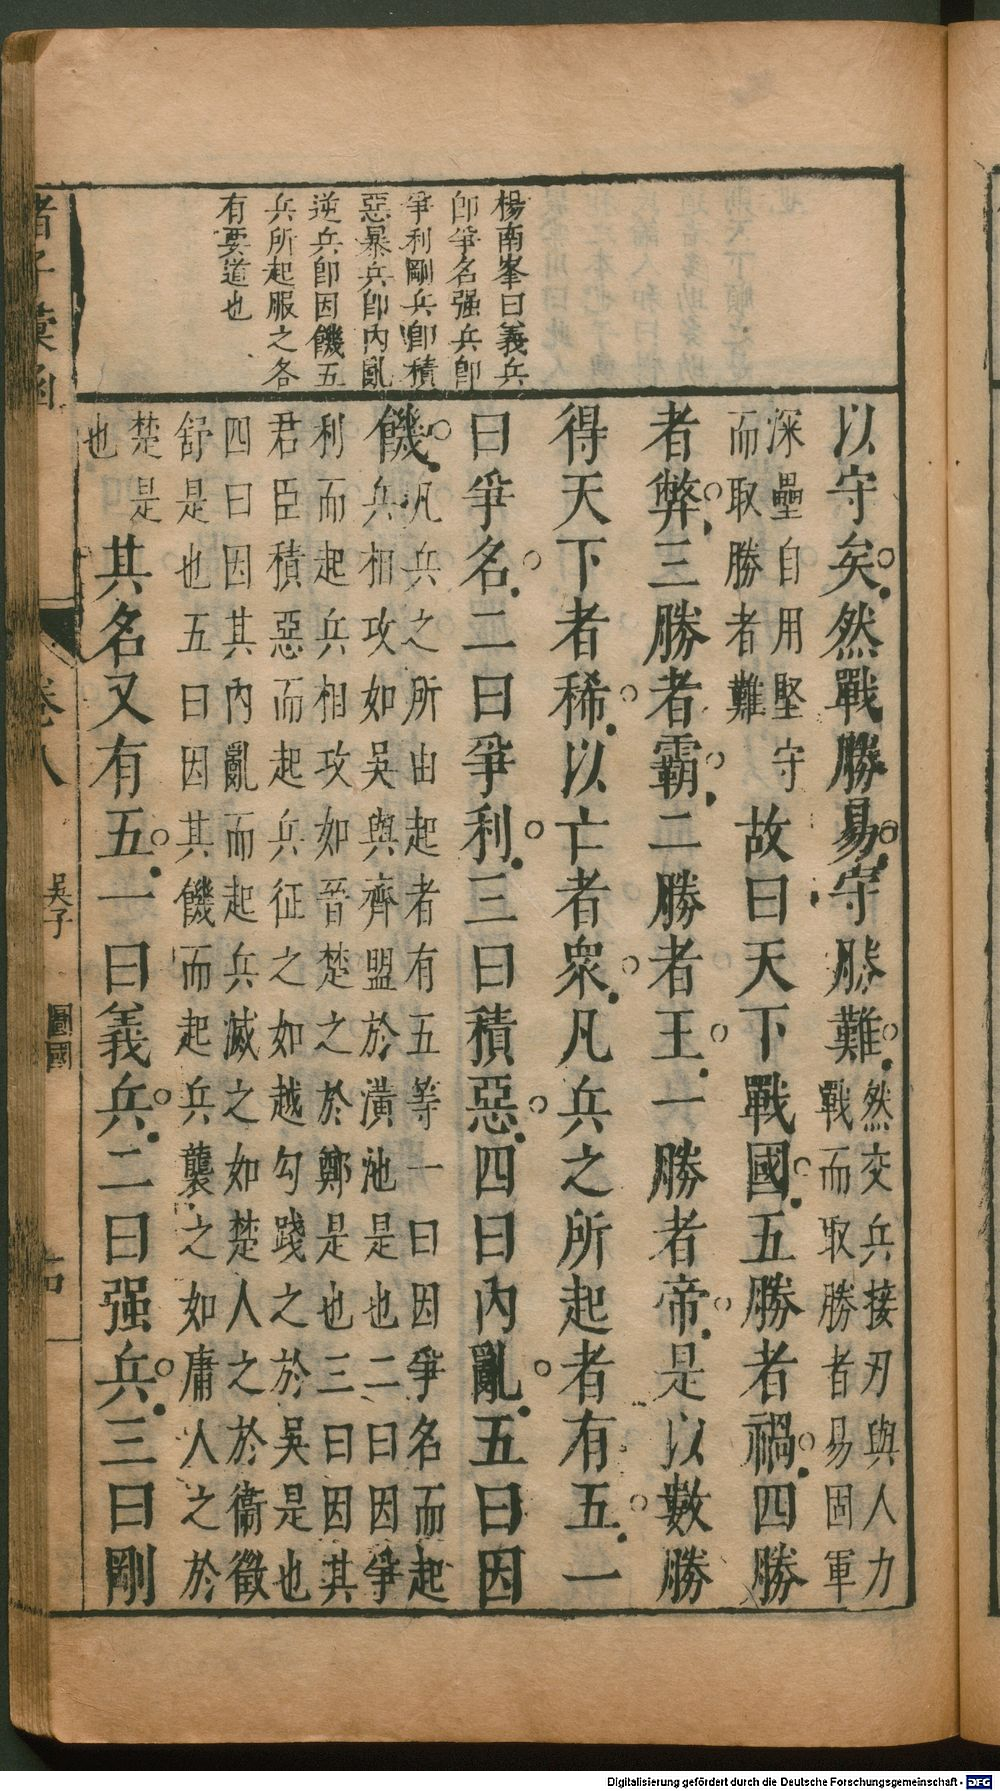 楊南峯曰義兵
卽爭名强兵卽
爭利剛兵卽積
惡暴兵卽內亂
逆兵卽因饑五
兵所起服之各
有要道也
以守矣然戰勝易守勝難
然交兵接刃與人力
戰而取勝者易固軍
深壘自用堅守
而取勝者難
故曰天下戰國五勝者禍四勝
者弊三勝者霸二勝者王一勝者帝是以數勝
得天下者稀以亡者衆凡兵之所起者有五一
曰爭名二曰爭利三曰積惡四曰內亂五曰因
饑
凡兵之所由起者有五等一曰因爭名而起
兵相攻如吳與齊盟於潢池是也二曰因爭
利而起兵相攻如晉楚之於鄭是也三曰因其
君臣積惡而起兵征之如越勾踐之於吳是也
四曰因其內亂而起兵滅之如楚人之於衞徵
舒是也五曰因其饑而起兵襲之如庸人之於
楚是
也
其名又有五一曰義兵二曰强兵三曰剛
諸子彙函
卷八
吳子
圖國
Digitalisierung gefördert durch die Deutsche Forschungsgemeinschaft - DFG